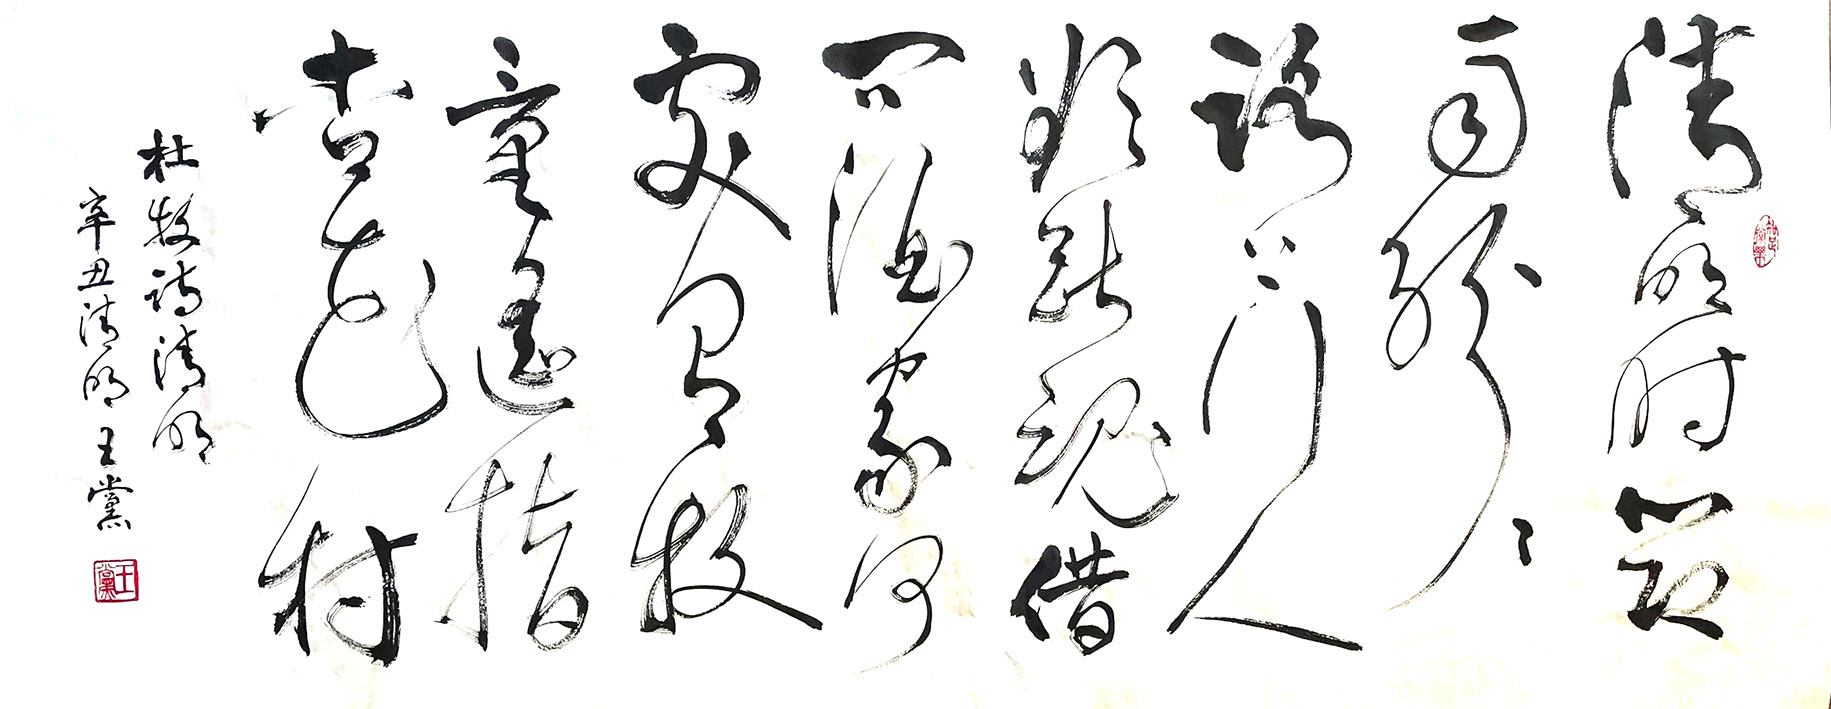 清明时节
雨纷纷
路上行人
欲断魂借
问酒家何
处有牧
童遥指
杏花村
杜牧诗清明
辛丑清明王黨
王黨